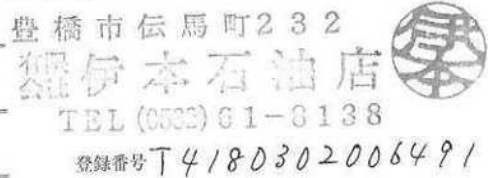 豊橋市伝馬町232
有限会社 伊本石油店
伊本
TEL (0532) 61-8138
登録番号 T4180302006491